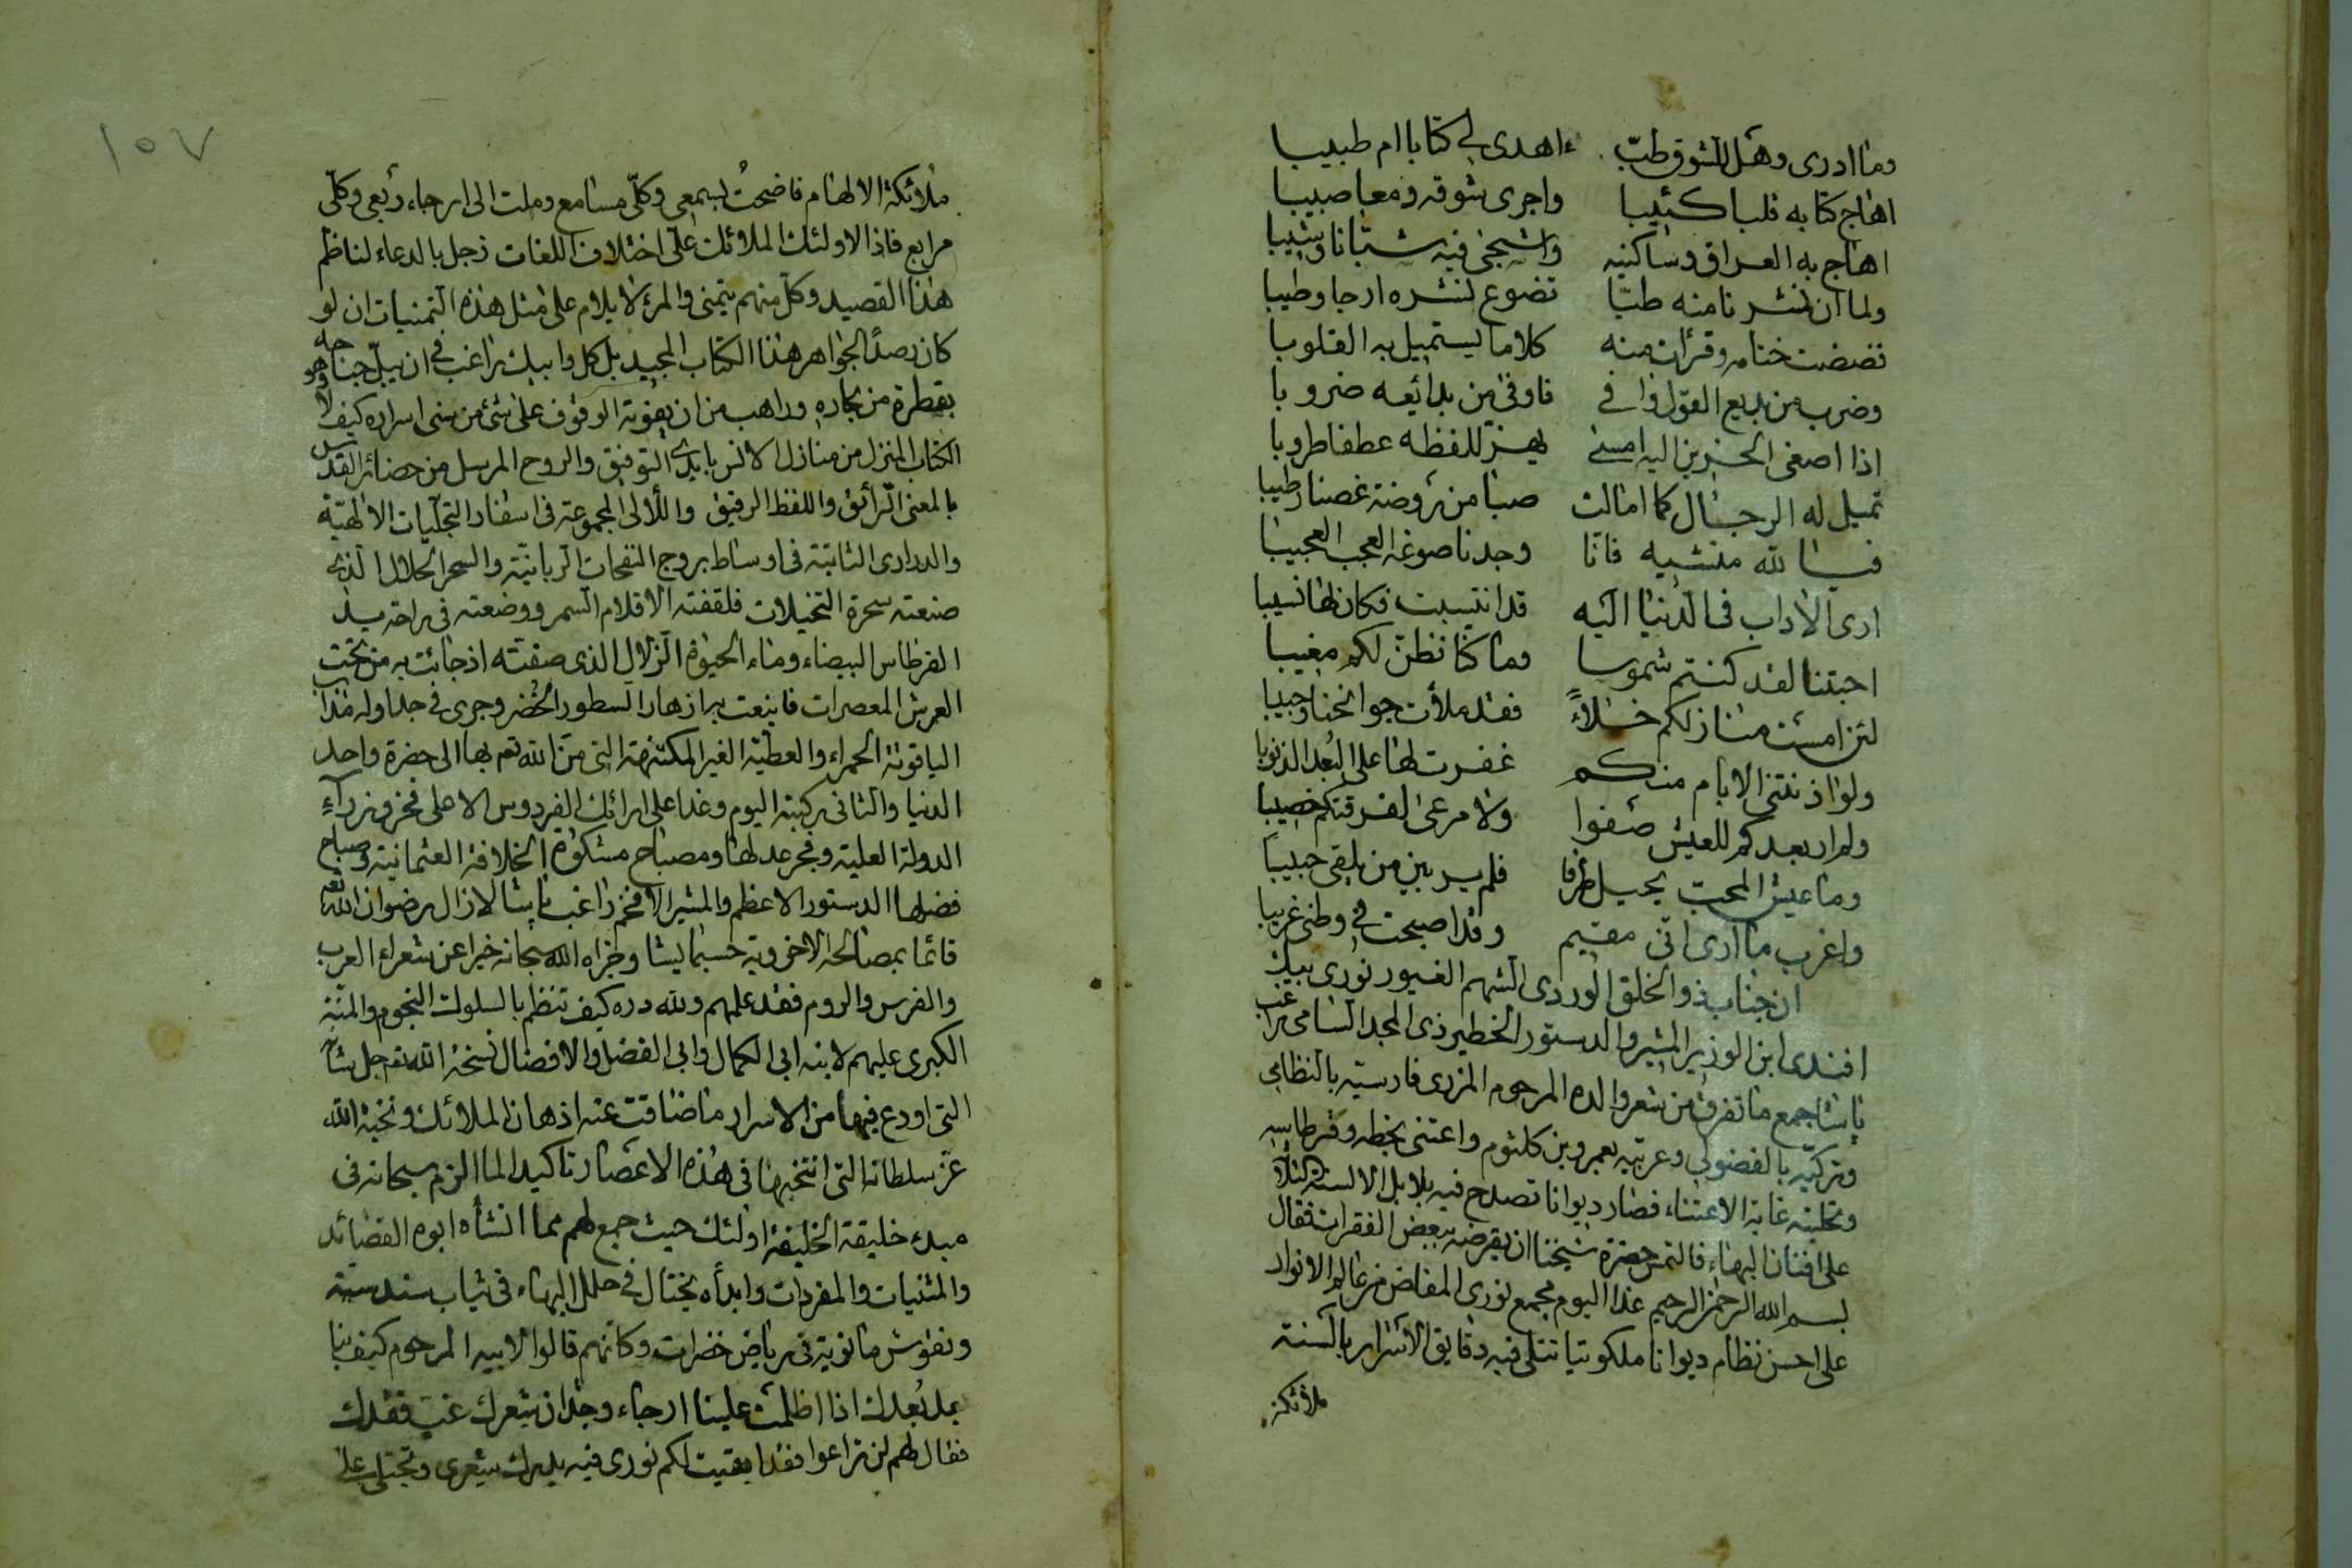 وما ادرى وهل للشوق طبّ ءاهدى لي كتابا ام طبيبا
اهاج كتابه قلبا كئيبا واجرى شوقه دمعا صبيبا
اهاج به العراق وساكنيه واشجى فيه شبّانا وشيبا
ولما ان نشرنا منه طيّا تضوع نشره ارجا وطيبا
فضضت ختامه وقرأت منه كلاما يستميل به القلوبا
وضرب من بديع القول وافي فاوفى من بدائعه ضروبا
اذا اصغى الحزين اليه امسى يهزّ للفظه عطفا طروبا
تميل له الرجال كما امالت صبا من روضة غصنا رطيبا
فيا لله منشيه فانا وجدنا صوغه العجب العجيبا
ارى الاداب في الدنيا اليه قد انتسبت فكان لها نسيبا
احبتنا لقد كنتم شموسا وما كنا نظنّ لكم مغيبا
لئن امست منازلكم خلاءً فقد ملأت جوانحنا وجيبا
ولو اذنتنى الايام منكم غفرت لها على البُعد الذنوبا
ولم ار بعدكم للعيش صفوا ولا مرعى لفرقتكم خصيبا
وما عيش المحبّ يجيل طرفا فلم ير بين من يلقى حبيبا
واغرب ما ارى انّى مقيم وقد اصبحت في وطنى غريبا
ان جناب ذو الخلق الوردى الشهم الغيور نورى بيك
افندى ابن الوزير المشير والدستور الخطير ذى المجد السامى راغب
پاشا جمع ما تفرق من شعر والده المرحوم المزرى فارسيته بالنظامي
وتركيّه بالفضولي وعربيّه بعمرو بن كلثوم واعتنى بخطه وقرطاسه
وتحليته غاية الاعتناء فصار ديوانا تصدح فيه بلابل الالسنة الثلاثة
على افنان البهاء فالتمس حضرة شيخنا ان يقرضه ببعض الفقرات فقال
بسم الله الرحمن الرحيم غدا اليوم مجمع نورى المفاض من عالم الانوار
على احسن نظام ديوانا ملكوتيا تتلى فيه دقايق الاسرار بالسنة
ملائكة
١٥٧
ملائكة الالهام فاضحتُ لسمعى وكلّى مسامع وملت الى ارجاء ربعى وكلّى
مرابع فاذا لاولئك الملائك على اختلاف اللغات زجل بالدعاء لناظم
هذا القصيد وكل منهم يتمنى والمرء لا يلام على مثل هذه التمنيات ان لو
كان رصدًا لجواهر هذا الكتاب المجيد بل كل وابيك راغب في ان يبلّ جناحه
بقطرة من بحاره وراهب من ان يفوته الوقوف على شئ من سنى اسراره كيف لا وهو
الكتاب المنزل من منازل الانس بايدى التوفيق والروح المرسل من حضائر القدس
بالمعنى الرائق واللفظ الرقيق واللألى المجموعة في اسفار التجليات الالهيّة
والدرارى الثابتة في اوساط بروج النفحات الربانيّة والسحر الحلال الذى
صنعته سحرة التخيلات فلقفته الاقلام السمر ووضعته في راحة يد
القرطاس البيضاء وماء الحيوة الزلال الذى صفته اذ جائت به من تحت
العرش المعصرات فاينعت به ازهار السطور الخُضر وجرى في جداوله مذاب
الياقوتة الحمراء والعطية الغير المكتنهة التى منّ الله تعم بها الى حضرة واحد
الدنيا والثانى ركبته اليوم وغدا على ارائك الفردوس الاعلى فخر وزرآءِ
الدولة العلية وفجر عدلها ومصباح مشكوة الخلافة العثمانية وصباح
فضلها الدستور الاعظم والمشير الافخم راغب پاشا لا زال رضوان الله تعم
قائما بمصالحه الاخروية حسبما يشا وجزاه الله سبحانه خيرا عن شعراء العرب
والفرس والروم فقد علمهم ولله دره كيف تنظم بالسلوك النجوم والمنّة
الكبرى عليهم لابنه ابى الكمال وابى الفضل والافضال نسخة الله تعم جل شأنه
التى اودع فيها من الاسرار ما ضاقت عنه اذهان الملائك ونخبة الله
عزّ سلطانه التى انتخبها في هذه الاعصار تاكيدا لما الزم سبحانه فى
مبدء خليقة الخليفة اولئك حيث جمع لهم مما انشأه ابوه القصائد
والمثنيات والمفردات وابدأه يختال في حلل البهاء في ثياب سندسية
ونقوش مانوية في رياض خضرات وكانهم قالوا لابيه المرحوم كيف بنا
بعد بُعدك اذا اظلمت علينا ارجاء وجدان شعرك غبّ فقدك
فقال لهم لن تراعوا فقد ابقيت لكم نورى فيه يدرك شعرى وتجتلى على